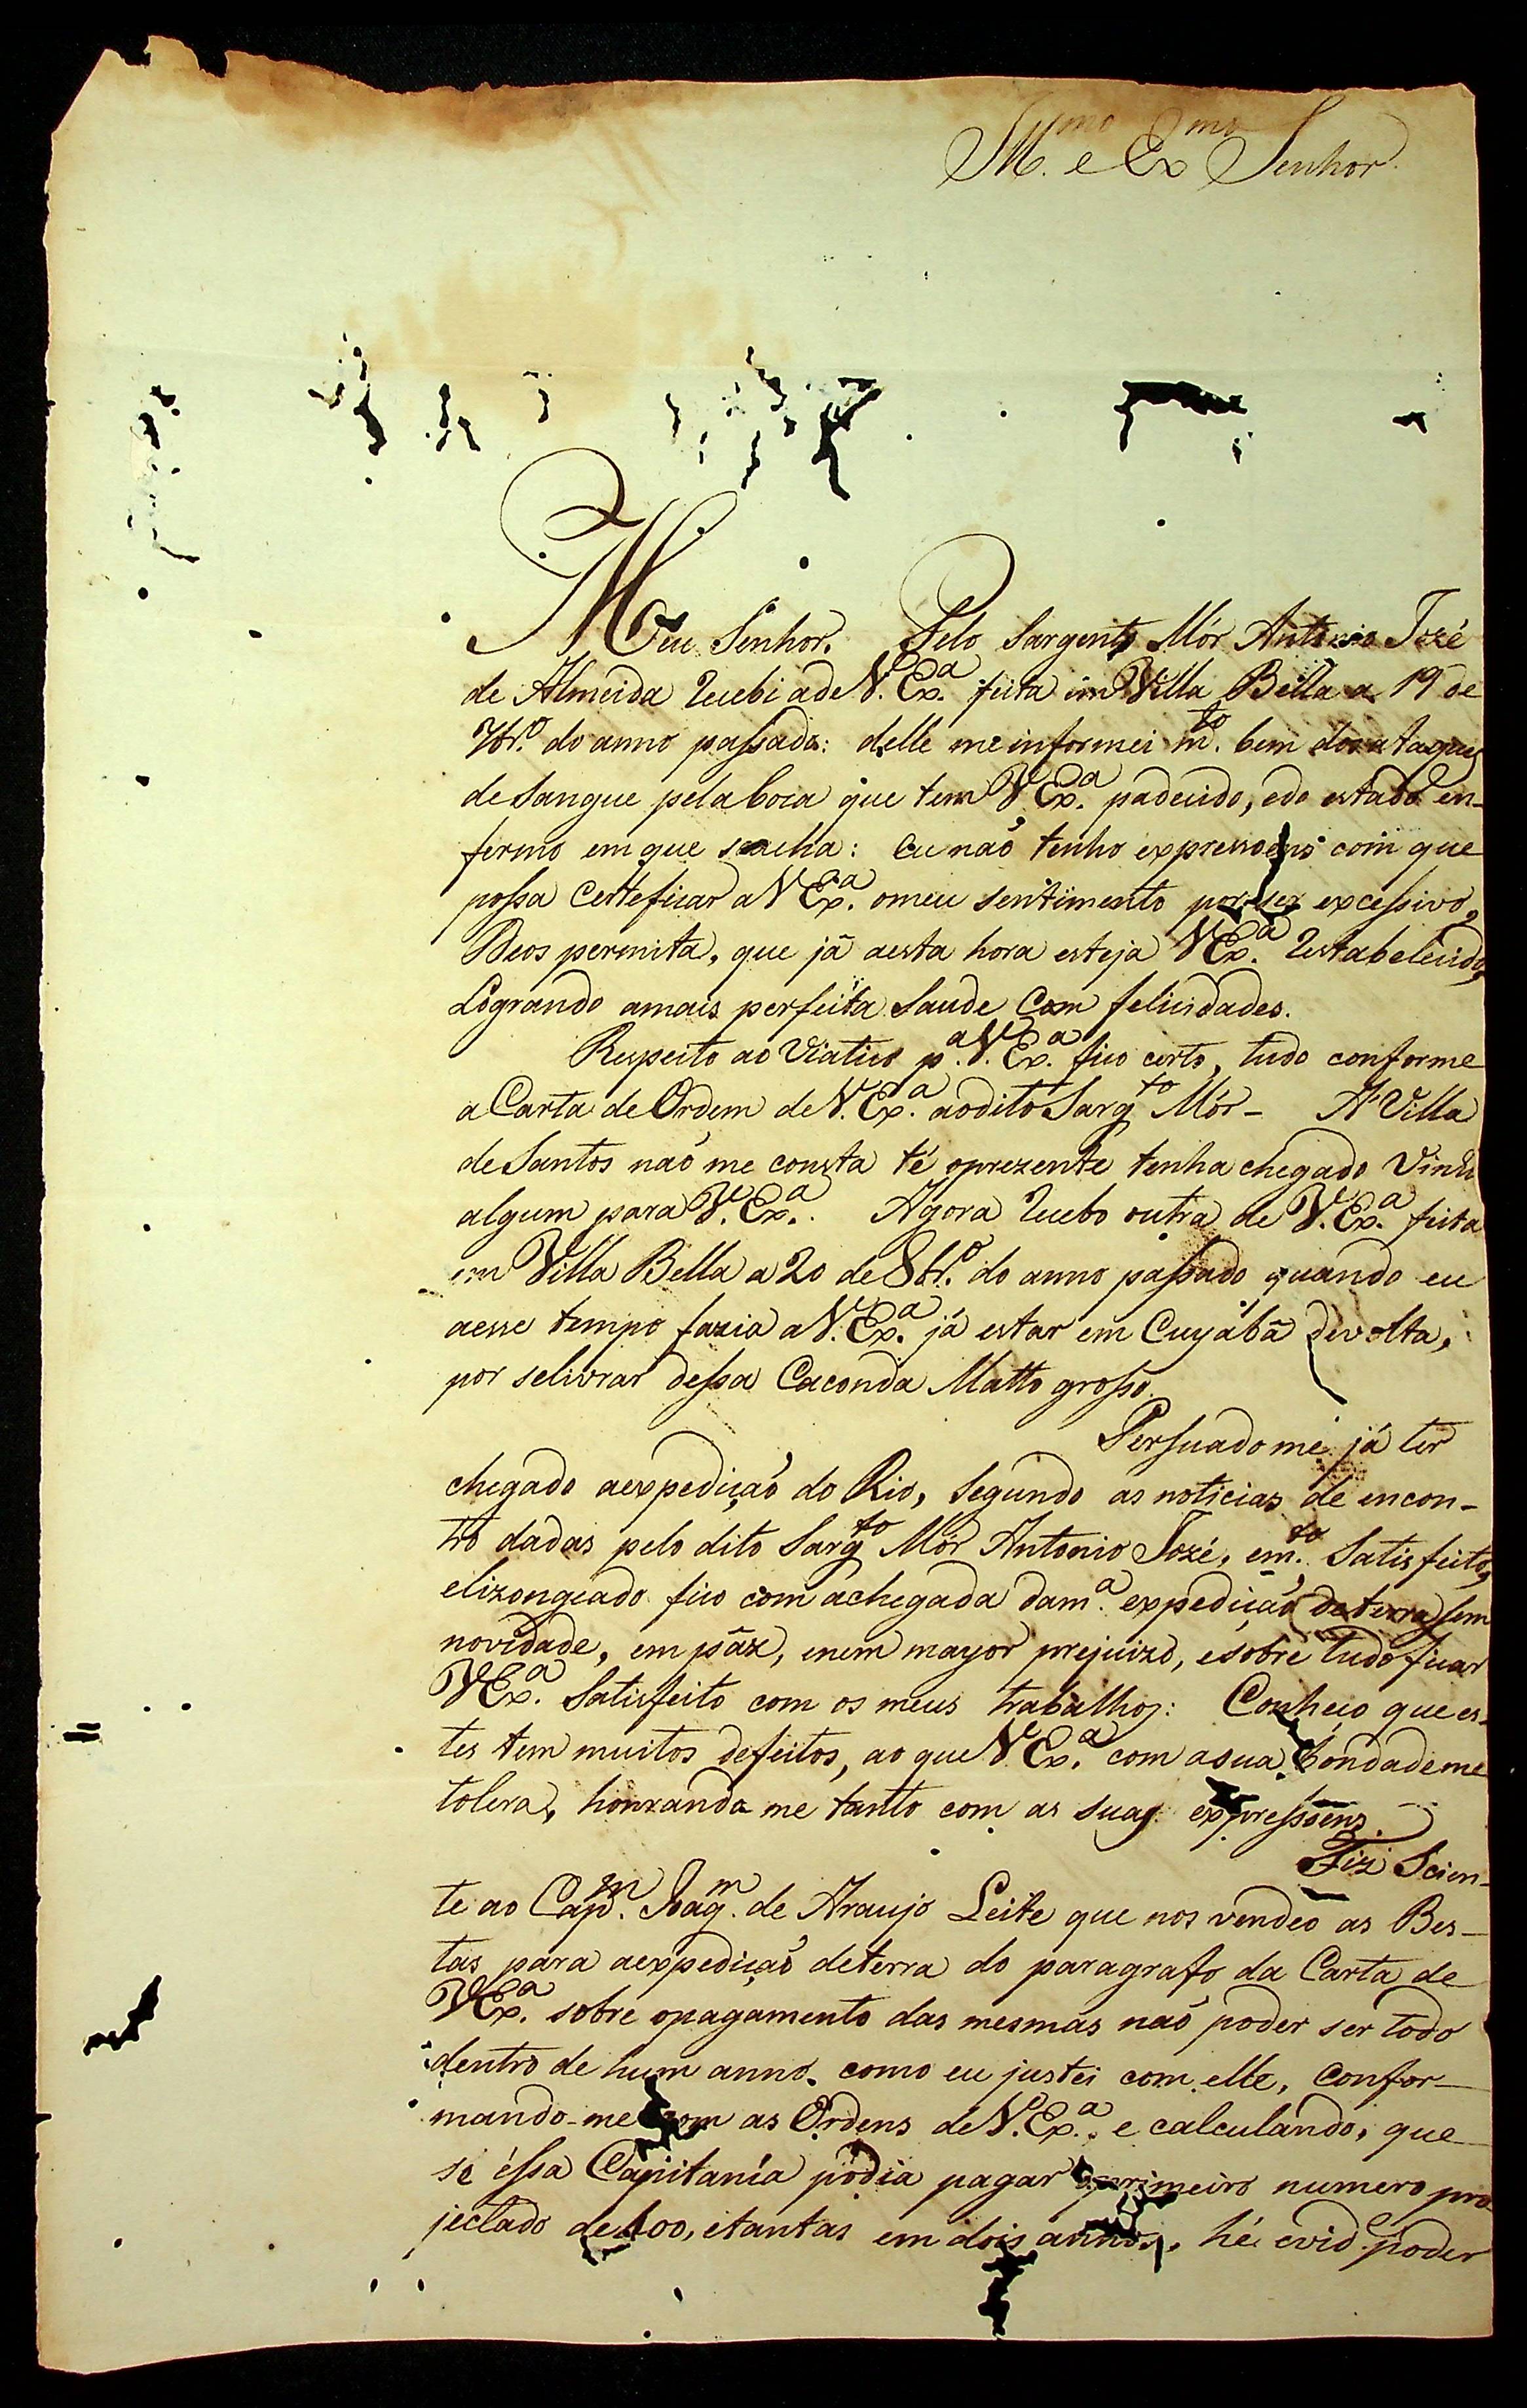 Ill.mo e Ex.mo Senhor.
Meu Senhor. Pelo Sargento Mór Antonio Jozé
de Almeida recebi a de V. Ex.a feita em Villa Bella a 19 de
7br.o do anno passado: delle me informei m.to bem dos ataques
de Sangue pela boca que tem V. Ex.a padecido, e do estado en-
fermo em que se acha: eu naõ tenho expressoens com que
possa certeficar a V Ex.a o meu sentimento por ser excessivo,
Deos permita, que já a esta hora esteja V Ex.a restabelecido,
Logrando a mais perfeita Saude com felicidades.
Respeito ao Viatico p.a V. Ex.a fico certo, tudo conforme
a Carta de Ordem de V. Ex.a ao dito Sarg.to Mór - A' Villa
de Santos naõ me consta té o prezente tenha chegado Vinho
algum para V. Ex.a. Agora recebo outra de V. Ex.a feita
em Villa Bella a 20 de 8br.o do anno passado, quando eu
a esse tempo fazia a V. Ex.a já estar em Cuyábá de volta,
por se livrar dessa Caconda Matto grosso.
Persuado me já ter
chegado a expediçaõ do Rio, Segundo as noticias de encon-
tro dadas pelo dito Sarg.to Mór Antonio Jozé, e m.to Satisfeito,
e lizongeado fico com a chegada da m.a expediçaõ de terra sem
novidade, em páz, e nem mayor prejuizo, e sobre tudo ficar
V Ex.a Satisfeito com os meus trabalhos: Conheço que es-
tes tem muitos defeitos, ao que V Ex.a com a sua bondade me
tolera, honrando me tanto com as suas expressoens.
Fiz Scien-
te ao Cap.m Joaq.m de Araujo Leite que nos vendeo as Bes-
tas para a expediçaõ de terra do paragrafo da Carta de
V Ex.a sobre o pagamento das mesmas naõ poder ser todo
dentro de hum anno, como eu justei com elle, confor-
mando-me com as Ordens de V. Ex.a, e calculando, que
se éssa Capitanía podia pagar o primeiro numero pro-
jectado de 100, e tantas em dois annos, hé evid.e poder